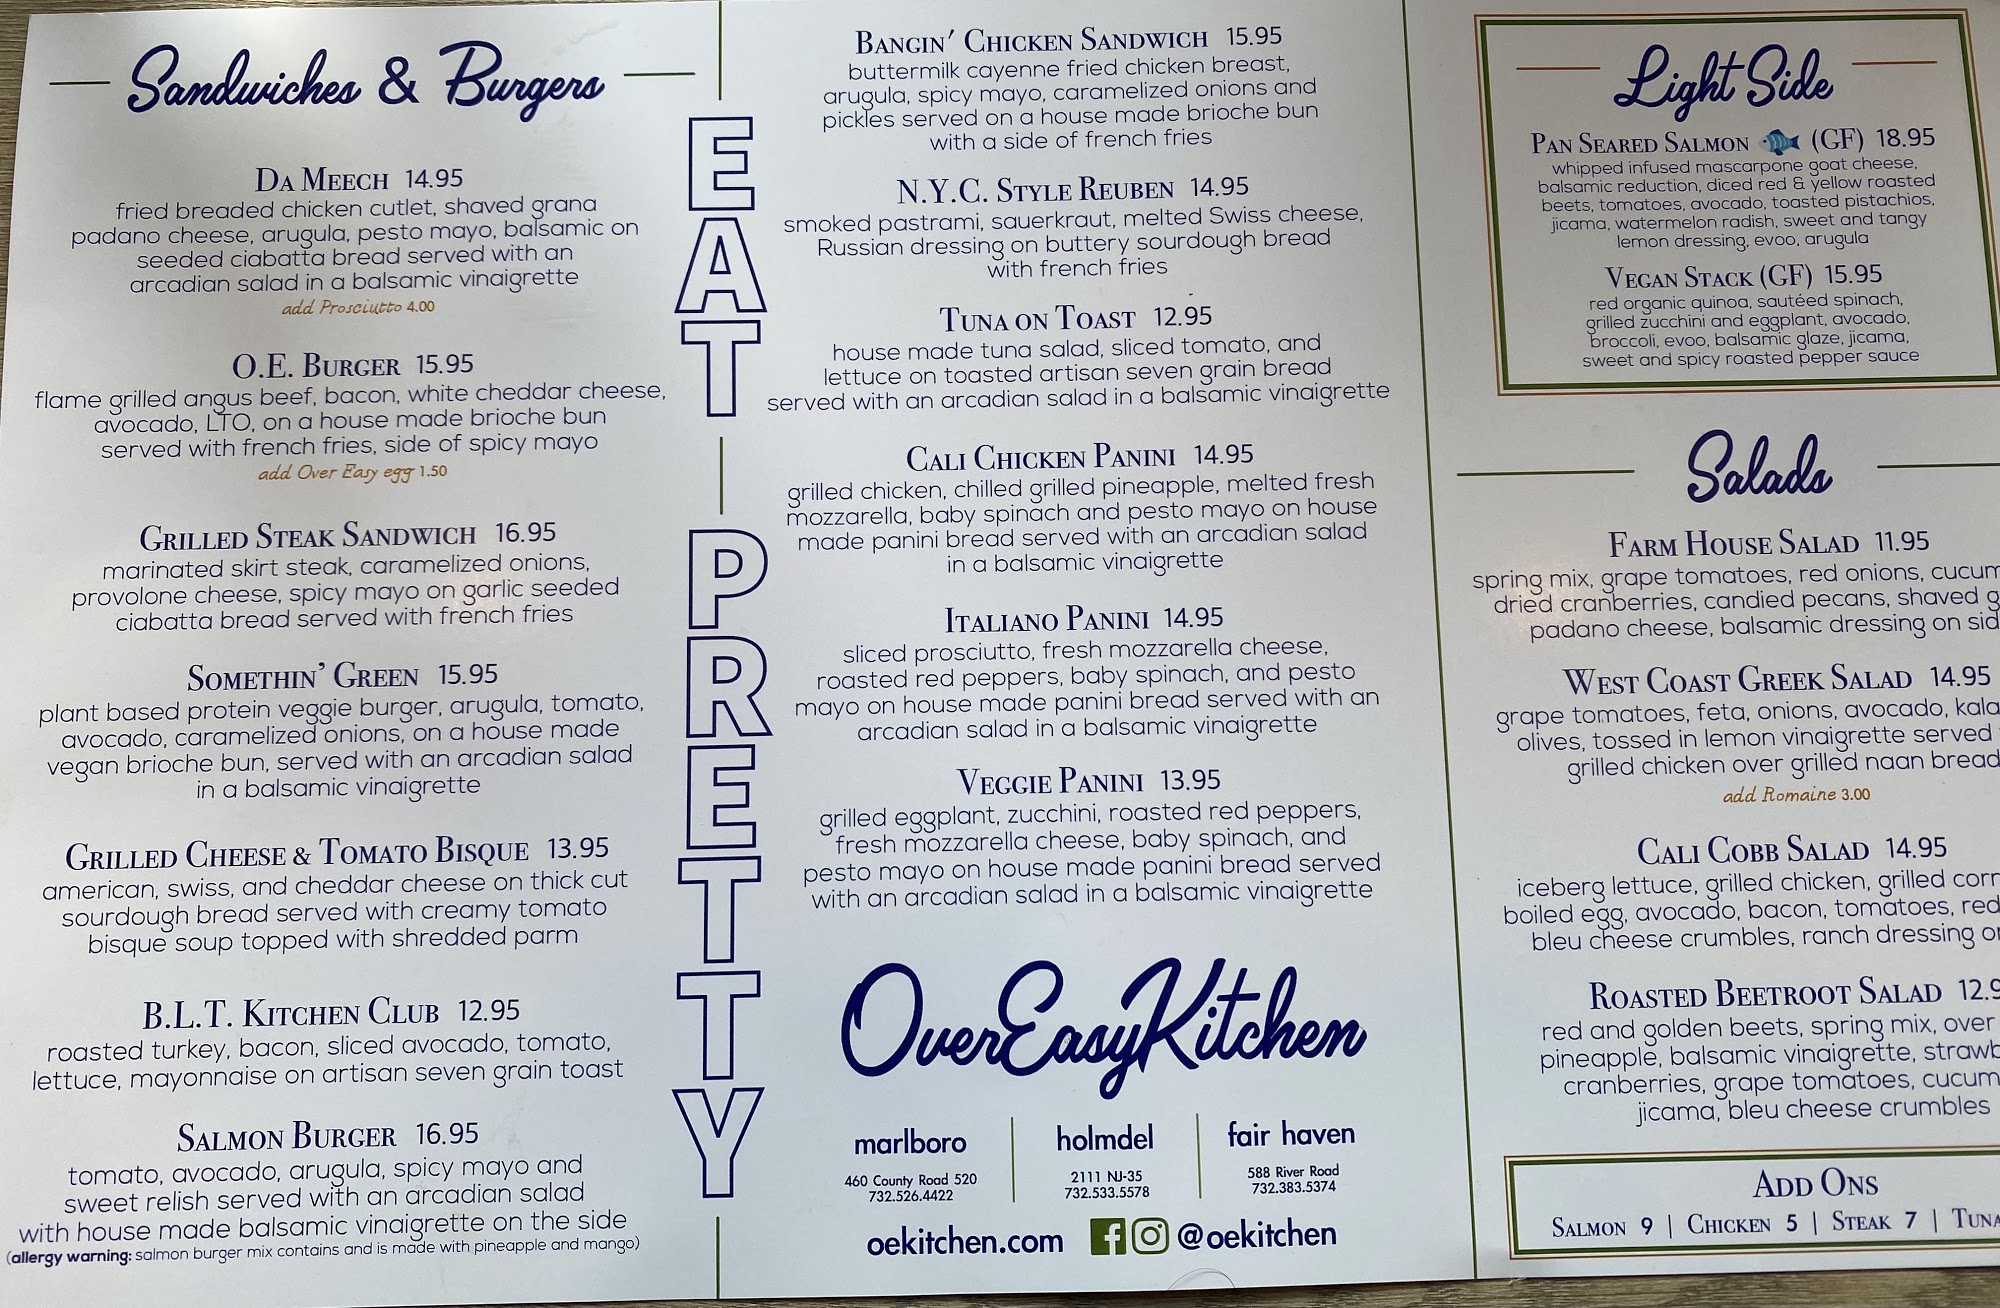 Sandwiches & Burgers
DA MEECH 14.95
fried breaded chicken cutlet, shaved grana
padano cheese, arugula, pesto mayo, balsamic on
seeded ciabatta bread served with an
arcadian salad in a balsamic vinaigrette
add Prosciutto 4.00
O.E. BURGER 15.95
flame grilled angus beef, bacon, white cheddar cheese,
avocado, LTO, on a house made brioche bun
served with french fries, side of spicy mayo
add Over Easy egg 1.50
GRILLED STEAK SANDWICH 16.95
marinated skirt steak, caramelized onions,
provolone cheese, spicy mayo on garlic seeded
ciabatta bread served with french fries
SOMETHIN' GREEN 15.95
plant based protein veggie burger, arugula, tomato,
avocado, caramelized onions, on a house made
vegan brioche bun, served with an arcadian salad
in a balsamic vinaigrette
GRILLED CHEESE & TOMATO BISQUE 13.95
american, swiss, and cheddar cheese on thick cut
sourdough bread served with creamy tomato
bisque soup topped with shredded parm
B.L.T. KITCHEN CLUB 12.95
roasted turkey, bacon, sliced avocado, tomato,
lettuce, mayonnaise on artisan seven grain toast
SALMON BURGER 16.95
tomato, avocado, arugula, spicy mayo and
sweet relish served with an arcadian salad
with house made balsamic vinaigrette on the side
(allergy warning: salmon burger mix contains and is made with pineapple and mango)
EAT
PRETTY
BANGIN' CHICKEN SANDWICH 15.95
buttermilk cayenne fried chicken breast,
arugula, spicy mayo, caramelized onions and
pickles served on a house made brioche bun
with a side of french fries
N.Y.C. STYLE REUBEN 14.95
smoked pastrami, sauerkraut, melted Swiss cheese,
Russian dressing on buttery sourdough bread
with french fries
TUNA ON TOAST 12.95
house made tuna salad, sliced tomato, and
lettuce on toasted artisan seven grain bread
served with an arcadian salad in a balsamic vinaigrette
CALI CHICKEN PANINI 14.95
grilled chicken, chilled grilled pineapple, melted fresh
mozzarella, baby spinach and pesto mayo on house
made panini bread served with an arcadian salad
in a balsamic vinaigrette
ITALIANO PANINI 14.95
sliced prosciutto, fresh mozzarella cheese,
roasted red peppers, baby spinach, and pesto
mayo on house made panini bread served with an
arcadian salad in a balsamic vinaigrette
VEGGIE PANINI 13.95
grilled eggplant, zucchini, roasted red peppers,
fresh mozzarella cheese, baby spinach, and
pesto mayo on house made panini bread served
with an arcadian salad in a balsamic vinaigrette
OverEasyKitchen
marlboro
460 County Road 520
732.526.4422
holmdel
2111 NJ-35
732.533.5578
fair haven
588 River Road
732.383.5374
oekitchen.com @oekitchen
Light Side
PAN SEARED SALMON (GF) 18.95
whipped infused mascarpone goat cheese,
balsamic reduction, diced red & yellow roasted
beets, tomatoes, avocado, toasted pistachios,
jicama, watermelon radish, sweet and tangy
lemon dressing, evoo, arugula
VEGAN STACK (GF) 15.95
red organic quinoa, sautéed spinach,
grilled zucchini and eggplant, avocado,
broccoli, evoo, balsamic glaze, jicama,
sweet and spicy roasted pepper sauce
Salads
FARM HOUSE SALAD 11.95
spring mix, grape tomatoes, red onions,
dried cranberries, candied pecans, shaved
padano cheese, balsamic dressing on
WEST COAST GREEK SALAD 14.95
grape tomatoes, feta, onions, avocado,
olives, tossed in lemon vinaigrette served
grilled chicken over grilled naan bread
add Romaine 3.00
CALI COBB SALAD 14.95
iceberg lettuce, grilled chicken, grilled
boiled egg, avocado, bacon, tomatoes, red
bleu cheese crumbles, ranch dressing
ROASTED BEETROOT SALAD
red and golden beets, spring mix, over
pineapple, balsamic vinaigrette,
cranberries, grape tomatoes,
jicama, bleu cheese crumbles
ADD ONS
SALMON 9 | CHICKEN 5 | STEAK 7 | TUNA